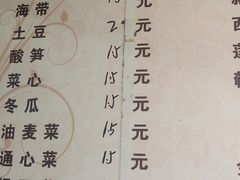 海带 15 元
土豆 2 元
酸笋 15 元
菜心 15 元
冬瓜 15 元
油麦菜 15 元
通心菜 15 元